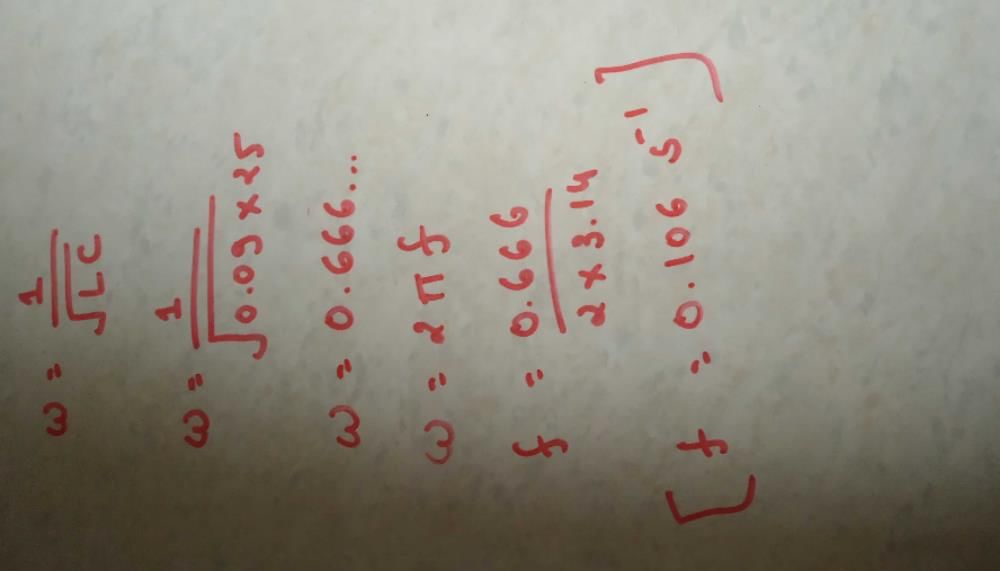 ω = 1/√LC
ω = 1/√0.09 × 25
ω = 0.666...
ω = 2πf
f = 0.666/2 × 3.14
[f = 0.106 s⁻¹]